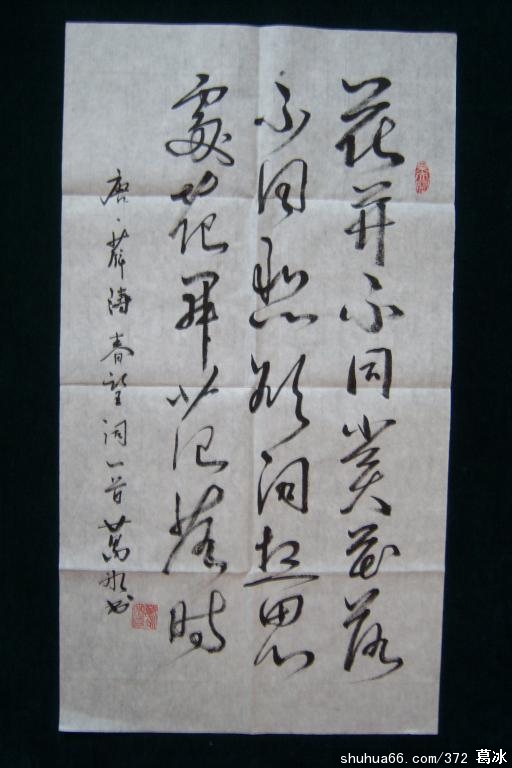 花开不同赏花落
不同悲欲问相思
处花开花落时
唐、薛涛春望词一首葛冰书
shuhua66.com/372 葛冰